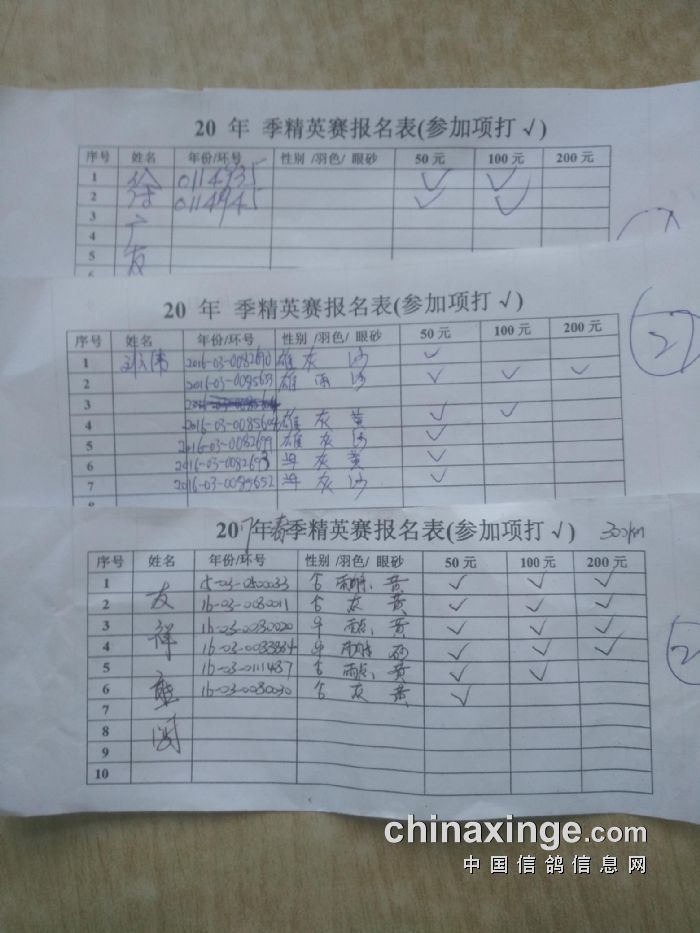 20 年 季精英赛报名表(参加项打 √)
序号 姓名 年份/环号 性别 /羽色/ 眼砂 50 元 100 元 200 元
1 徐 0114935 √ √
2 0114945 √ √
3 广
4
5 友
6
20 年 季精英赛报名表(参加项打 √)
序号 姓名 年份/环号 性别 /羽色/ 眼砂 50 元 100 元 200 元
1 2016-03-0082690 雄 灰 沙 √
2 2016-03-0085659 雄 雨 沙 √ √ √
3
4 雄 灰 黄 √ √
5 2016-03-0082699 雄 灰 沙 √
6 2016-03-0082693 灰 黄 √
7 2016-03-0085652 灰 沙 √
2
2017年春季精英赛报名表(参加项打 √) 300km
序号 姓名 年份/环号 性别 /羽色/ 眼砂 50 元 100 元 200 元
1 友 15-03-0500033 黄 √ √ √
2 16-03-0080011 灰 黄 √ √ √
3 祥 16-03-0080020 雨点、黄 √ √ √
4 16-03-0033884 砂 √ √ √
5 16-03-0111487 雨点、黄 √ √
6 16-03-0080030 灰 黄 √
7
8
9
10
2
chinaxinge.com
中国信鸽信息网